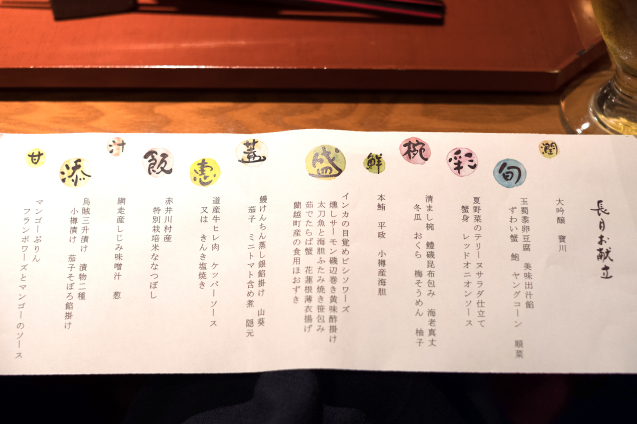 長月お献立
潤
大吟醸 寳川
旬
玉蜀黍卵豆腐 美味出汁餡
ずわい蟹 鮑 ヤングコーン 順菜
彩
夏野菜のテリーヌサラダ仕立て
蟹身 レッドオニオンソース
椀
清まし椀 鱧磯昆布包み 海老真丈
冬瓜 おくら 梅そうめん 柚子
鮮
本鮪 平政 小樽産海胆
盛
インカの目覚めビシソワーズ
燻しサーモン磯辺巻き黄味酢掛け
太刀魚と海胆ふたみ焼き笹包み
茹でたらば蟹 花蓮根薄衣揚げ
蘭越町産の食用ほおずき
蓋
鰻けんちん蒸し銀餡掛け 山葵
茄子 ミニトマト含め煮 隠元
恵
道産牛ヒレ肉 ケッパーソース
又は きんき塩焼き
飯
赤井川村産
特別栽培米ななつぼし
汁
網走産しじみ味噌汁 葱
添
烏賊三升漬け 漬物二種
小樽漬け 茄子そぼろ餡掛け
甘
マンゴーぷりん
フランボワーズとマンゴーのソース